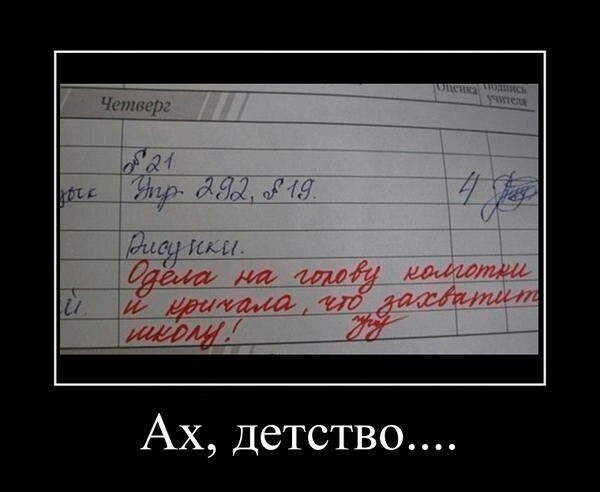 Оценка Подпись учителя
Четверг
§21
Упр 292, §19. 4
Рисунки.
Одела на голову колготки
и кричала, что захватит
школу!
Ах, детство....